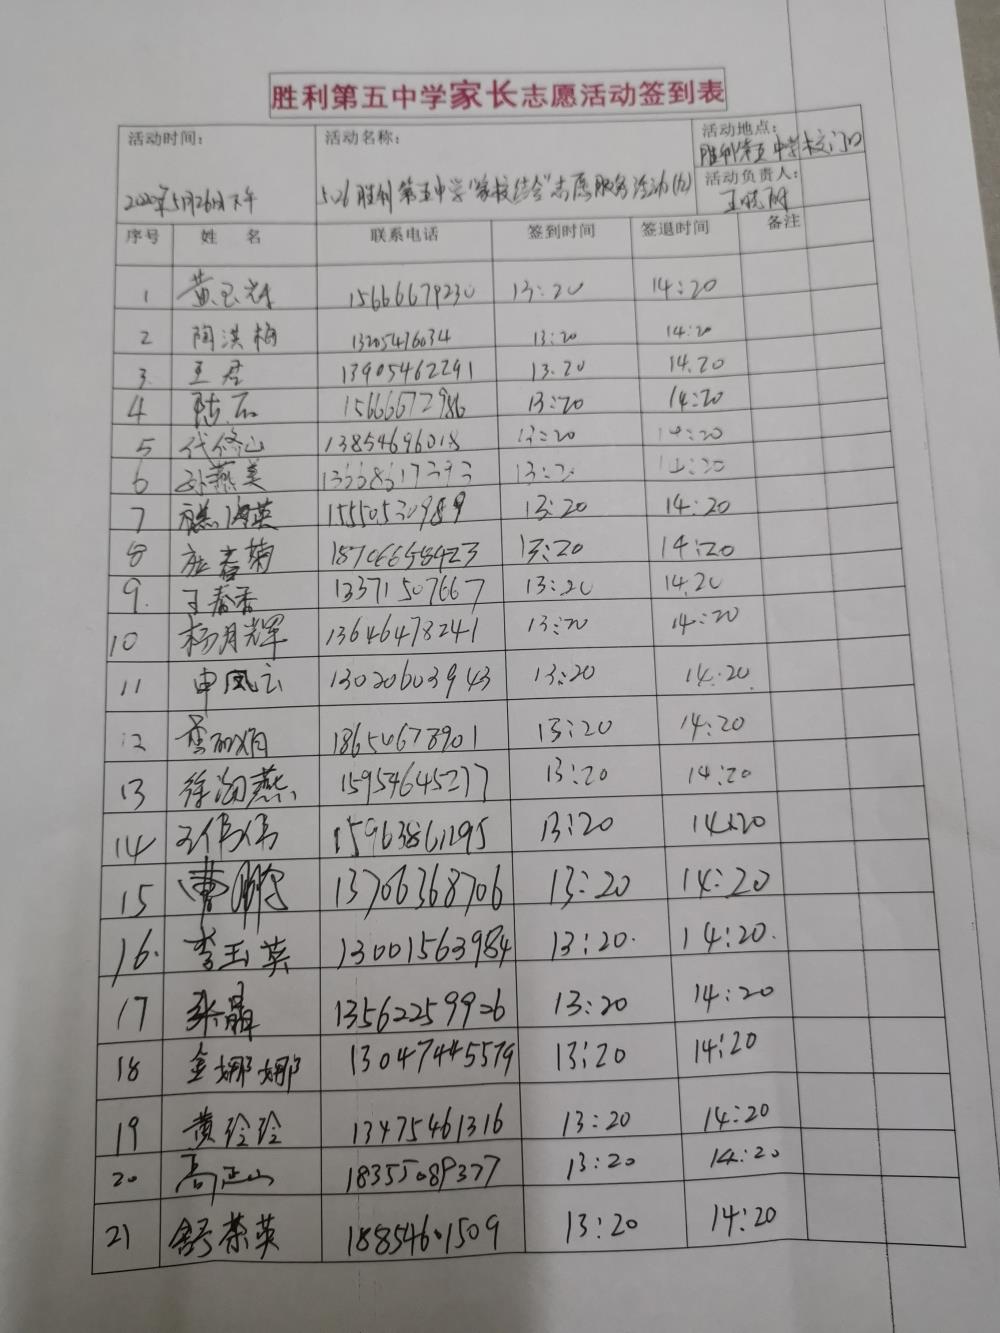 胜利第五中学家长志愿活动签到表
活动时间: 活动名称: 活动地点:
胜利第五中学校门口
2020年5月26日下午 5.26胜利第五中学"家校结合"志愿服务活动(九) 活动负责人:
序号 姓 名 联系电话 签到时间 签退时间 备注
1 黄 15666679230 13:20 14:20
2 陶洪梅 13205476034 13:20 14:20
3. 王君 13905462291 13.20 14.20
4 陆 15666672986 13:20 14:20
5 代修山 13854696018 13:20 14:20
6 孙燕美 13668617393 13:20 14:20
7 海英 15550530989 13:20 14:20
8 春菊 18706658423 13:20 14:20
9. 王春香 13371507667 13:20 14.20
10 杨月辉 13646478241 13:20 14:20
11 申凤云 13020603943 13:20 14.20
12 18650673901 13:20 14:20
13 徐海燕 15954645277 13:20 14:20
14 王伟伟 15963861295 13:20 14:20
15 曹鹏 13706368706 13:20 14:20
16. 李玉英 13001563984 13:20. 14:20.
17 张晶 13562259926 13:20 14:20
18 金娜娜 13047445579 13:20 14:20
19 黄玲玲 13475461316 13:20 14:20
20 高正山 18355089377 13:20 14:20
21 舒荣英 18854601509 13:20 14:20